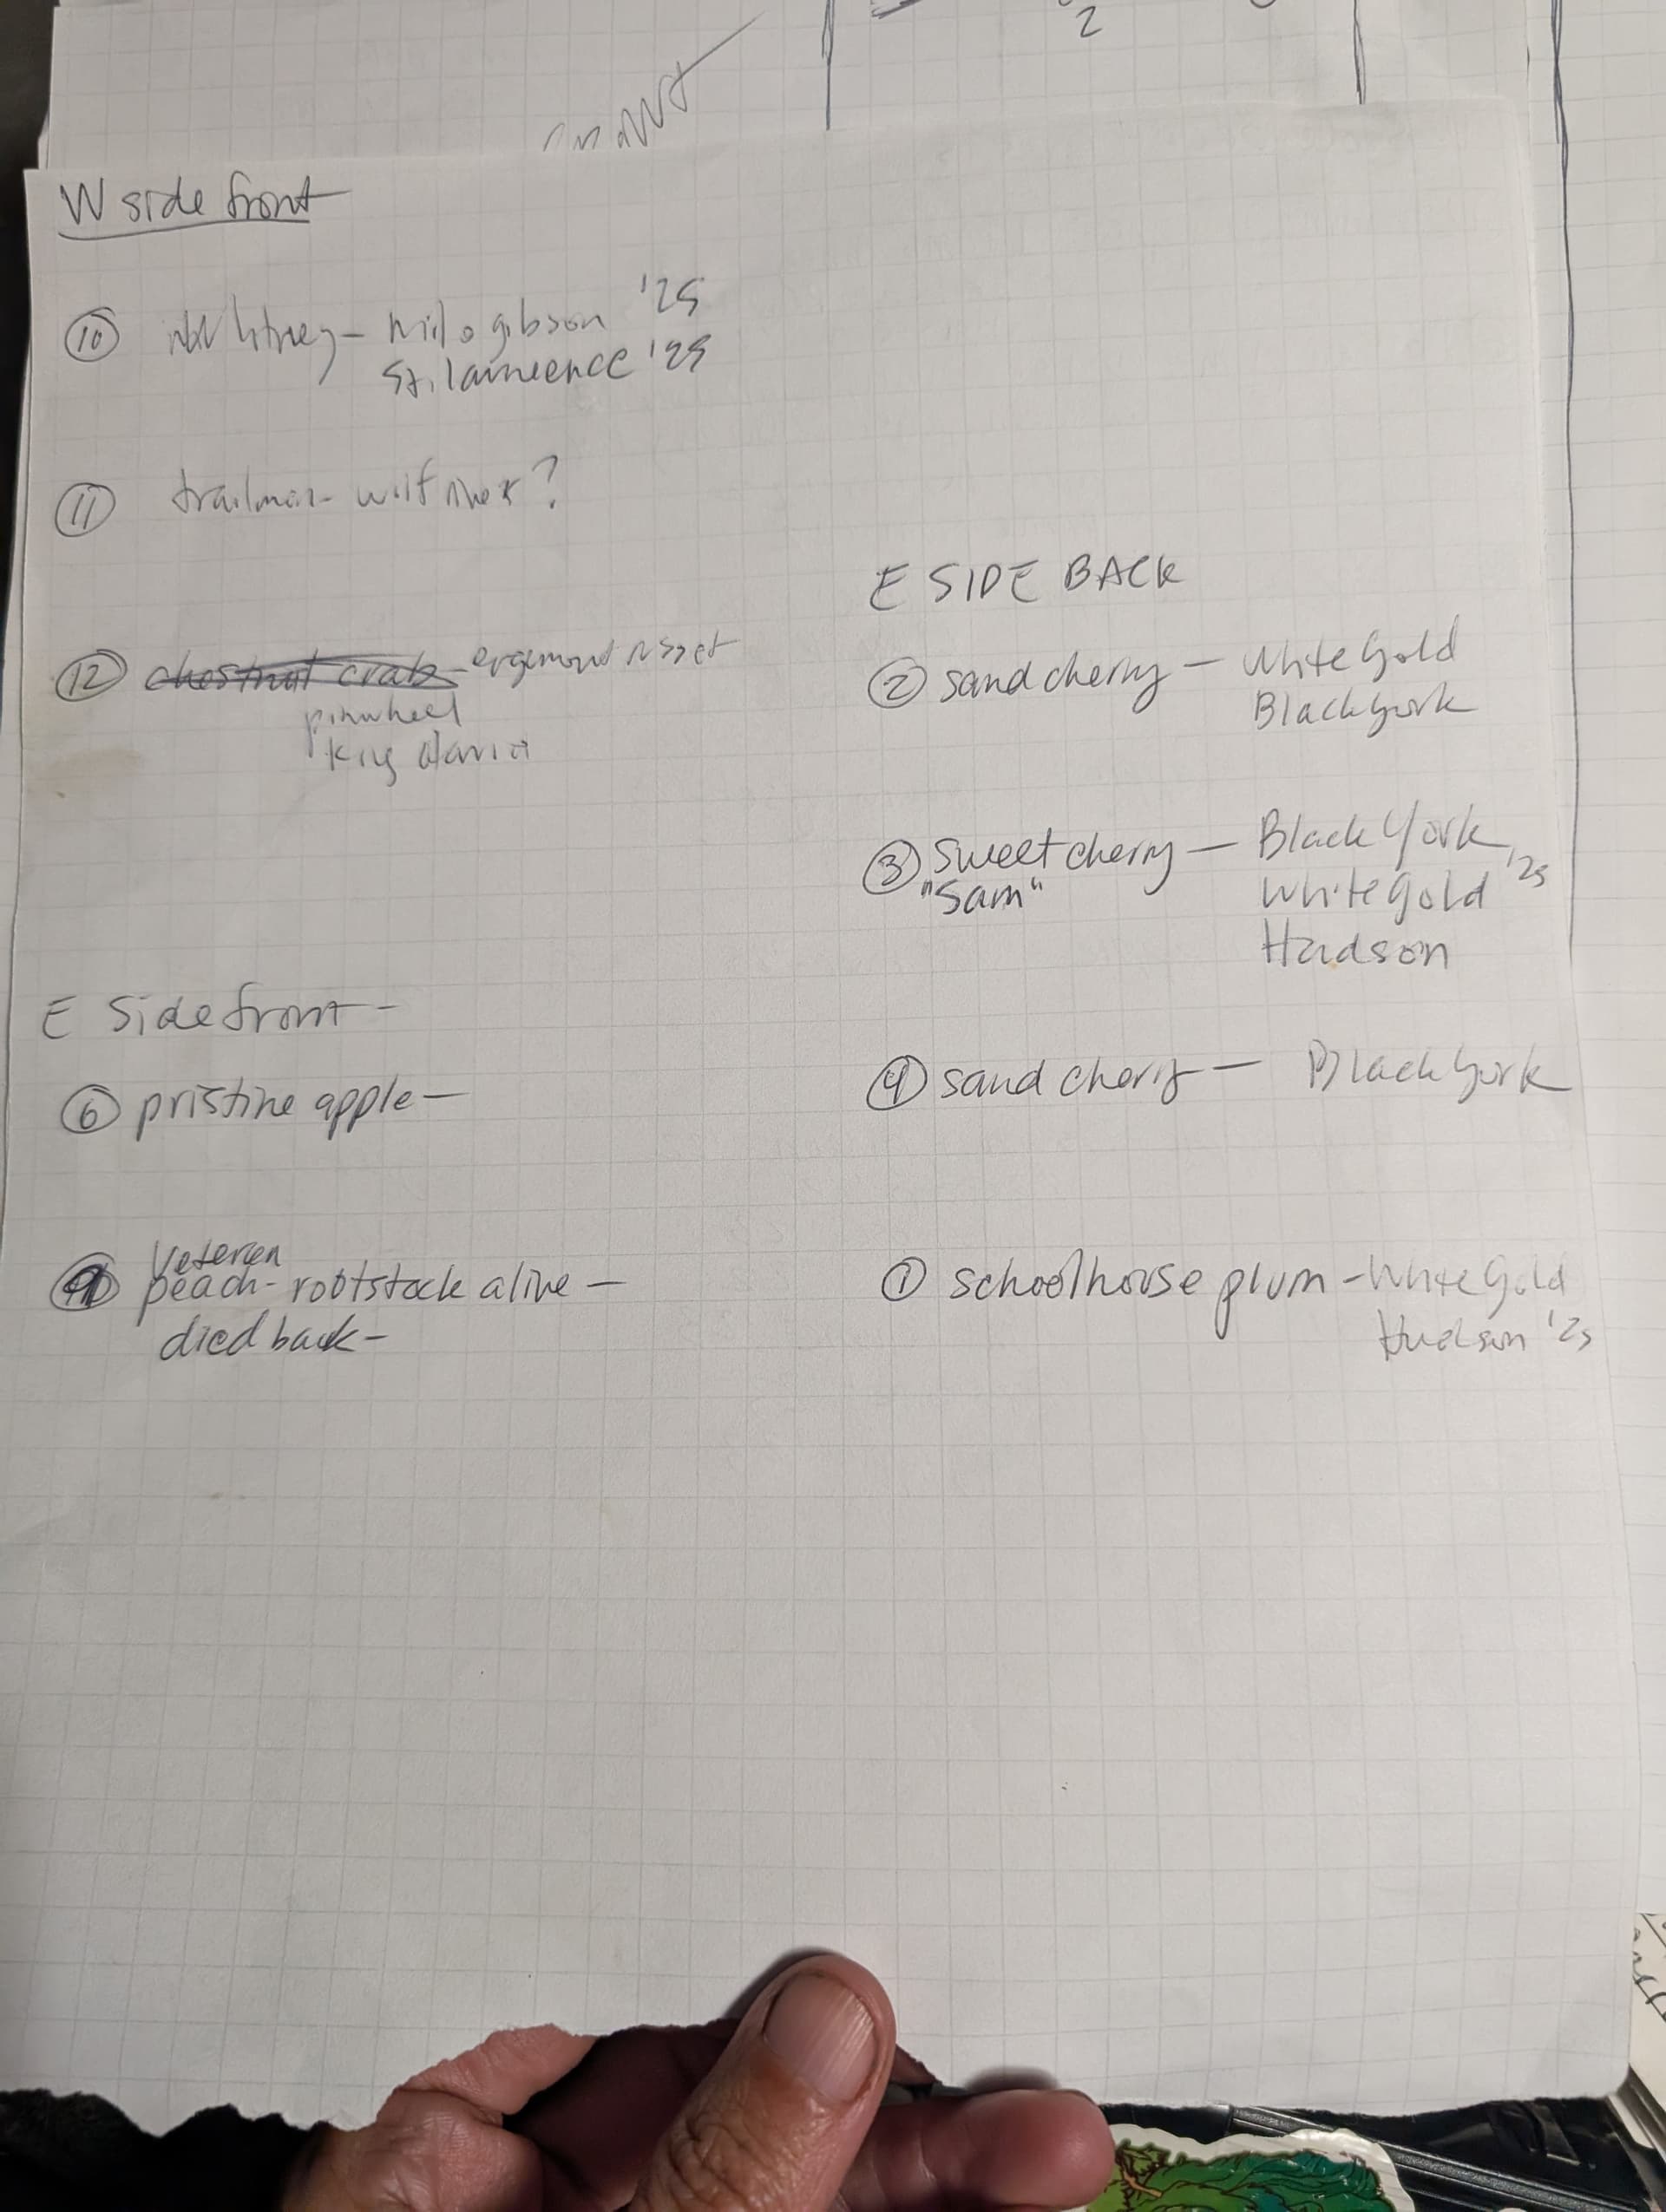 2
W side front
⑩ Whitney - Milo gibson '25
St. lawrence '25
⑪ trailman - ?
⑫ chestnut crab - egremont russet
pinwheel
King david
E Side front -
⑥ pristine apple -
Veteran
peach - rootstock alive -
died back -
E SIDE BACK
② sand cherry - White Gold
Black York
③ sweet cherry - Black York
"Sam" White Gold '25
Hudson
④ sand cherry - Black York
① schoolhouse plum - White Gold
Hudson '25